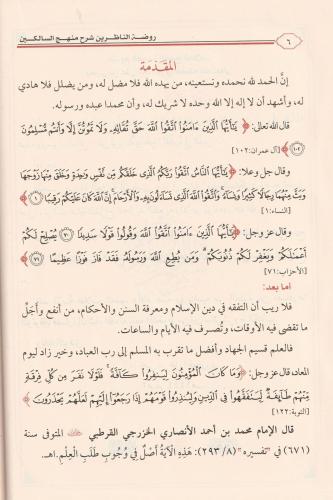 ٦ روضة الناظرين شرح منهج السالكين
المقدمة
إنَّ الحمد لله نحمده ونستعينه، من يهده الله فلا مضل له، ومن يضلل فلا هادي
له، وأشهد أن لا إله إلا الله وحده لا شريك له، وأن محمدا عبده ورسوله.
قال الله تعالى: ﴿يَٰٓأَيُّهَا ٱلَّذِينَ ءَامَنُوا۟ ٱتَّقُوا۟ ٱللَّهَ حَقَّ تُقَاتِهِۦ وَلَا تَمُوتُنَّ إِلَّا وَأَنتُم مُّسْلِمُونَ
١٠٢﴾ [آل عمران:١٠٢]
وقال جل وعلا: ﴿يَٰٓأَيُّهَا ٱلنَّاسُ ٱتَّقُوا۟ رَبَّكُمُ ٱلَّذِى خَلَقَكُم مِّن نَّفْسٍ وَٰحِدَةٍ وَخَلَقَ مِنْهَا زَوْجَهَا
وَبَثَّ مِنْهُمَا رِجَالًا كَثِيرًا وَنِسَآءً ۚ وَٱتَّقُوا۟ ٱللَّهَ ٱلَّذِى تَسَآءَلُونَ بِهِۦ وَٱلْأَرْحَامَ ۚ إِنَّ ٱللَّهَ كَانَ عَلَيْكُمْ رَقِيبًا ١﴾
[النساء:١]
وقال عز وجل: ﴿يَٰٓأَيُّهَا ٱلَّذِينَ ءَامَنُوا۟ ٱتَّقُوا۟ ٱللَّهَ وَقُولُوا۟ قَوْلًا سَدِيدًا ٧٠ يُصْلِحْ لَكُمْ
أَعْمَٰلَكُمْ وَيَغْفِرْ لَكُمْ ذُنُوبَكُمْ ۗ وَمَن يُطِعِ ٱللَّهَ وَرَسُولَهُۥ فَقَدْ فَازَ فَوْزًا عَظِيمًا ٧١﴾
[الأحزاب:٧١]
أما بعد:
فلا ريب أن التفقه في دين الإسلام ومعرفة السنن والأحكام، من أنفع وأجَلِّ
ما تقضى فيه الأوقات، وتُصرف فيه الأيام والساعات.
فالعلم قسيم الجهاد وأفضل ما تقرب به المسلم إلى رب العباد، وخير زاد ليوم
المعاد، قال عز وجل: ﴿وَمَا كَانَ ٱلْمُؤْمِنُونَ لِيَنفِرُوا۟ كَآفَّةً ۚ فَلَوْلَا نَفَرَ مِن كُلِّ فِرْقَةٍ
مِّنْهُمْ طَآئِفَةٌ لِّيَتَفَقَّهُوا۟ فِى ٱلدِّينِ وَلِيُنذِرُوا۟ قَوْمَهُمْ إِذَا رَجَعُوٓا۟ إِلَيْهِمْ لَعَلَّهُمْ يَحْذَرُونَ﴾
[التوبة:١٢٢]
قال الإمام محمد بن أحمد الأنصاري الخزرجي القرطبي المتوفى سنة
(٦٧١) في "تفسيره" (٢٩٣/٨): هَذِهِ الْآيَةُ أَصْلٌ فِي وُجُوبِ طَلَبِ الْعِلْمِ.اهـ.